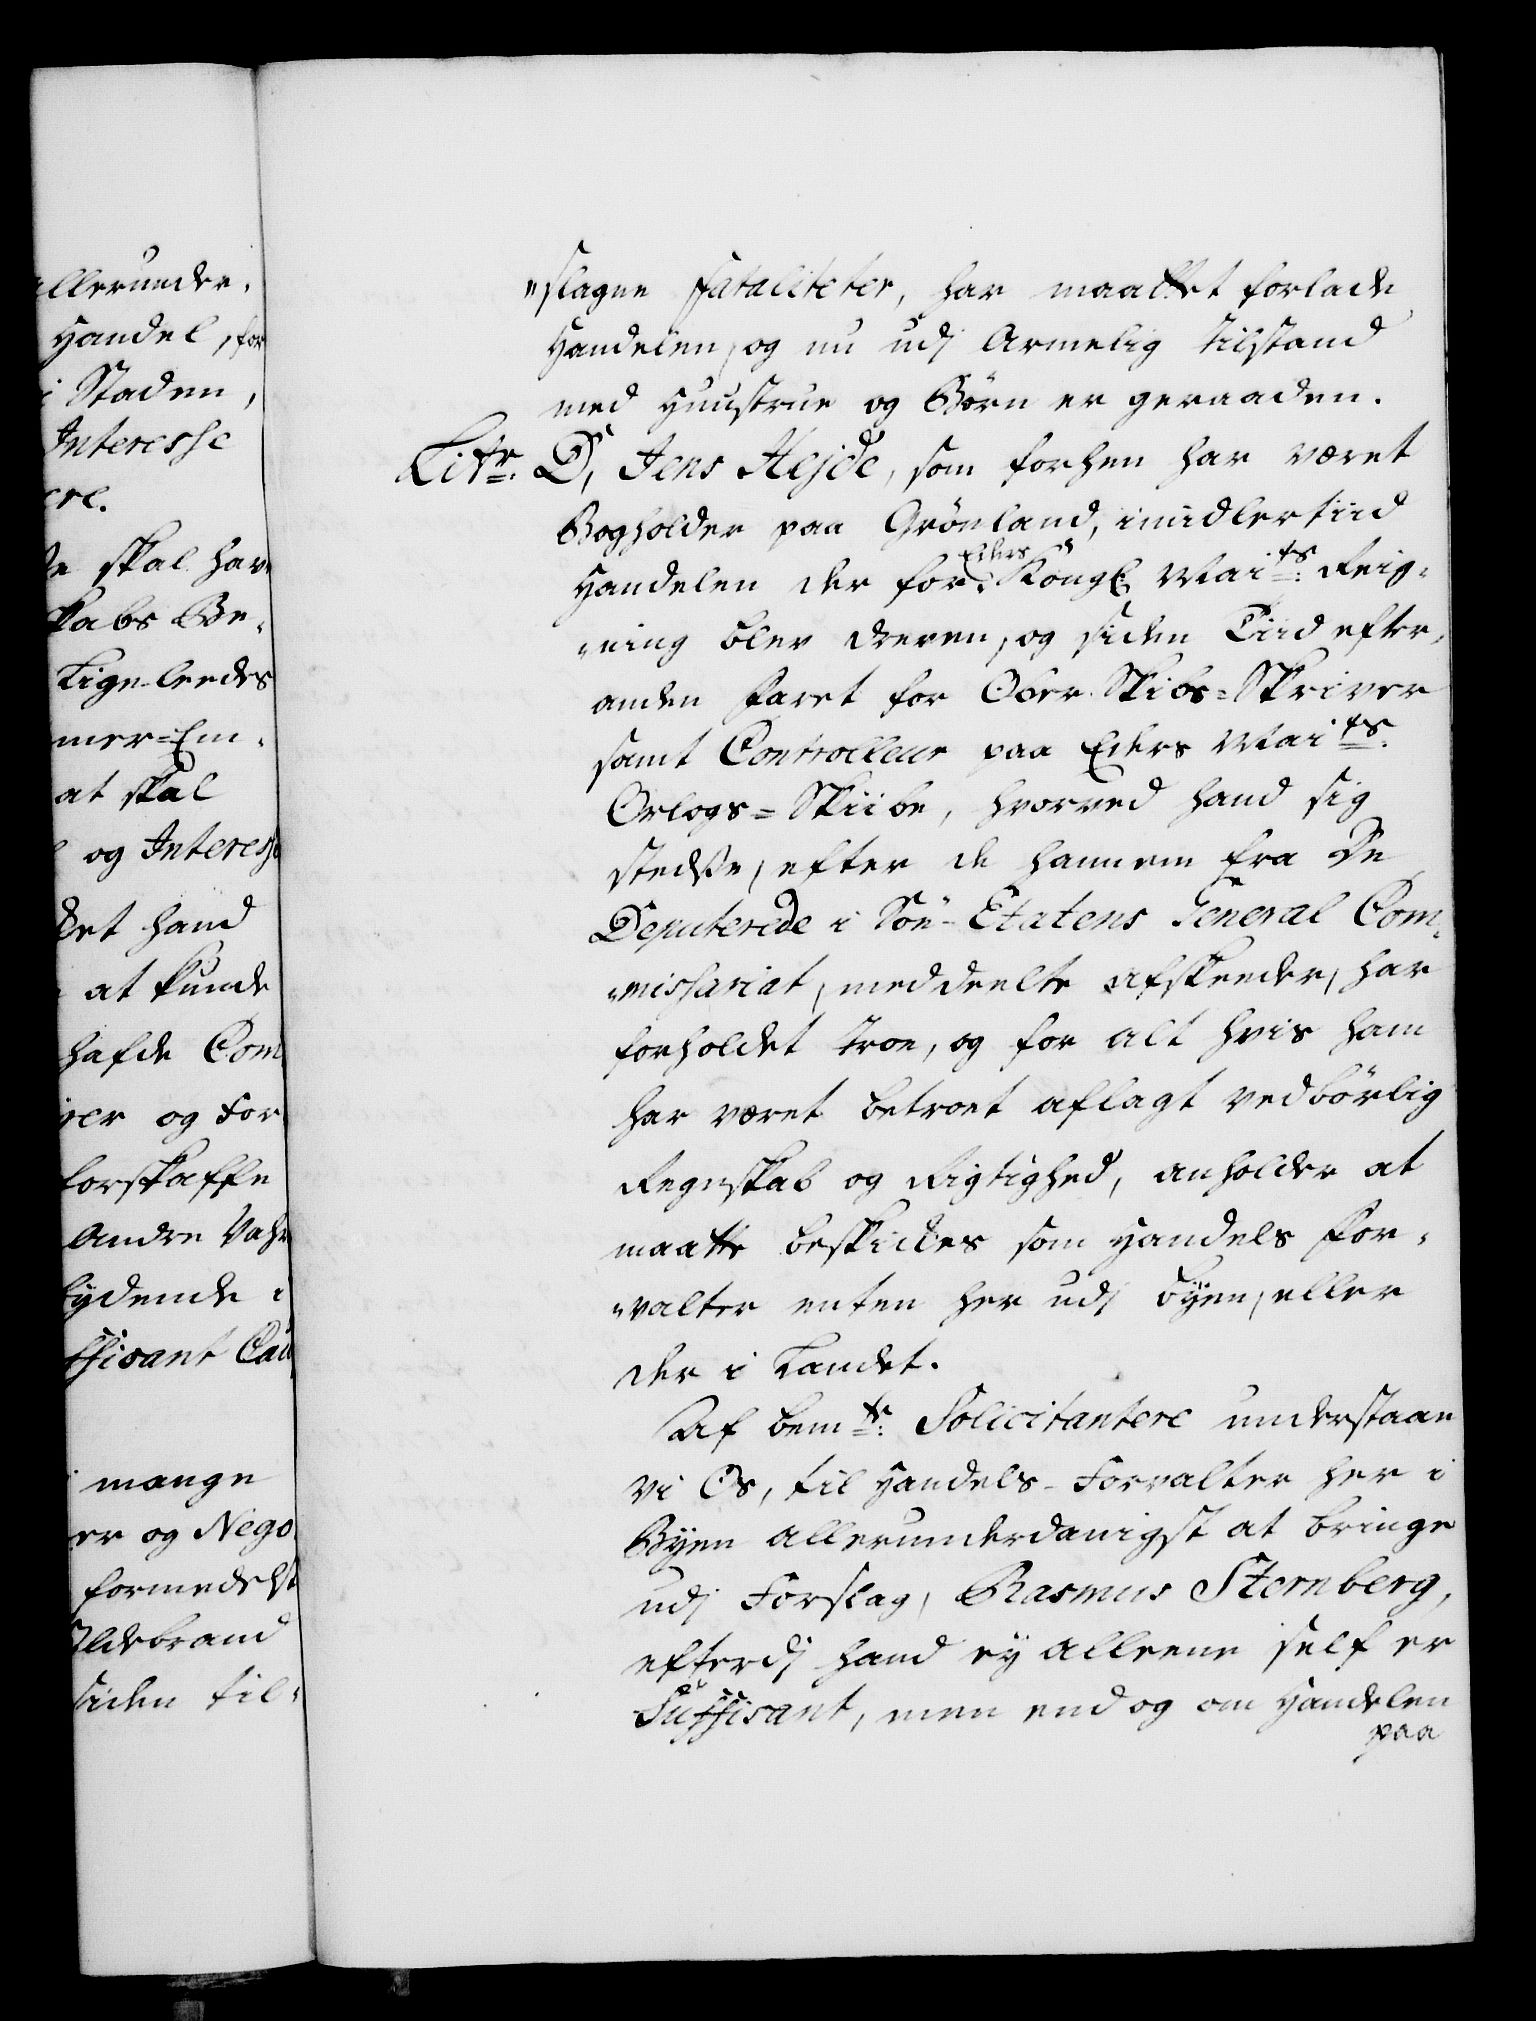 allerunder,
Handel, for
i Staden,
Interesse
ere.
de skal hav
kabs Be,
Lige-leedes
mer=Em,
at skal
og Interesse
det hand
at kunde
hafde Com
er og For,
forskaffe
andre Vahr
lydende i
ffisant Cau
mange
er og Nego
formedelst
Ildebrand
siden til,
"slagne Fataliteter, har maattet forlade
Handelen, og nu udj armelig tilstand
med Huustrue og Børn er geraaden.
Litr. D, Jens Hejde, som forhen har været
Bogholder paa Grønland, imidlertiid
Handelen der for Eders Kongl Mai ts: Reig,
"ning blev dreven, og siden Tiid efter,
anden faret for Ober Skibs=Skriver
samt Controlleur paa Eders Mai ts.
Orlogs=Skiibe, hvorved hand sig
stedse, efter de hannem fra De
Deputerede i Søe-Etatens General Com,
"missariat, meddeelte afskeeder, har
forholdet troe, og for alt hvis ham
har været betroet aflagt vedbørlig
Regnskab og Rigtighed, anholder at
maatte beskikkes som Handels For,
"valter enten her udj Byen, eller
der i Landet.
Af bem te: Solicitantere understaae
vi Os, til Handels-Forvalter her i
Byen allerunderdanigst at bringe
udj Forslag, Rasmus Sternberg,
efterdj hand ey alleene self er
Suffisant, men end og om Handelen
paa